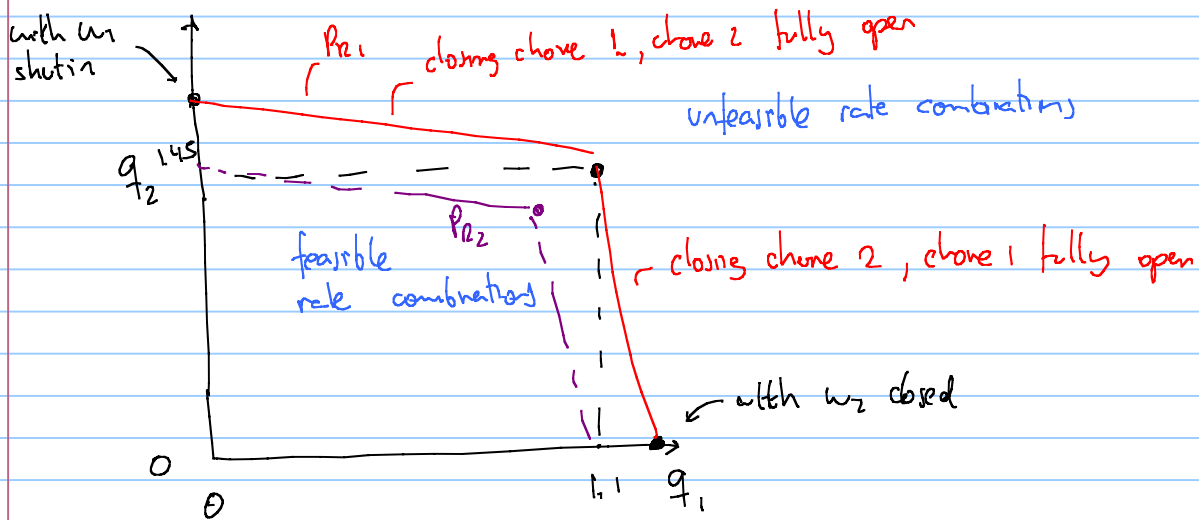 with w1
shut in
PR1
closing choke 1, choke 2 fully open
unfeasible rate combinations
q2
1.45
PR2
feasible
rate combinations
closing choke 2, choke 1 fully open
with w2 closed
0
0
1.1
q1